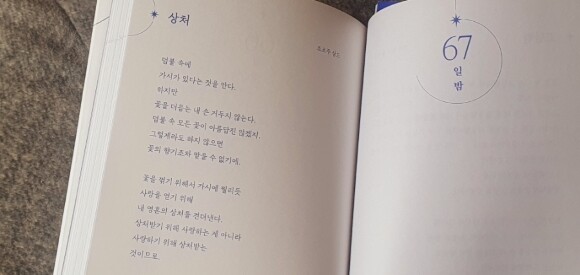 상처
조르주 상드
덤불 속에
가시가 있다는 것을 안다.
하지만
꽃을 더듬는 내 손 거두지 않는다.
덤불 속 모든 꽃이 아름답진 않겠지.
그렇게라도 하지 않으면
꽃의 향기조차 맡을 수 없기에.
꽃을 꺾기 위해서 가시에 찔리듯
사랑을 얻기 위해
내 영혼의 상처를 견뎌낸다.
상처받기 위해 사랑하는 게 아니라
사랑하기 위해 상처받는
것이므로.
67
일
밤